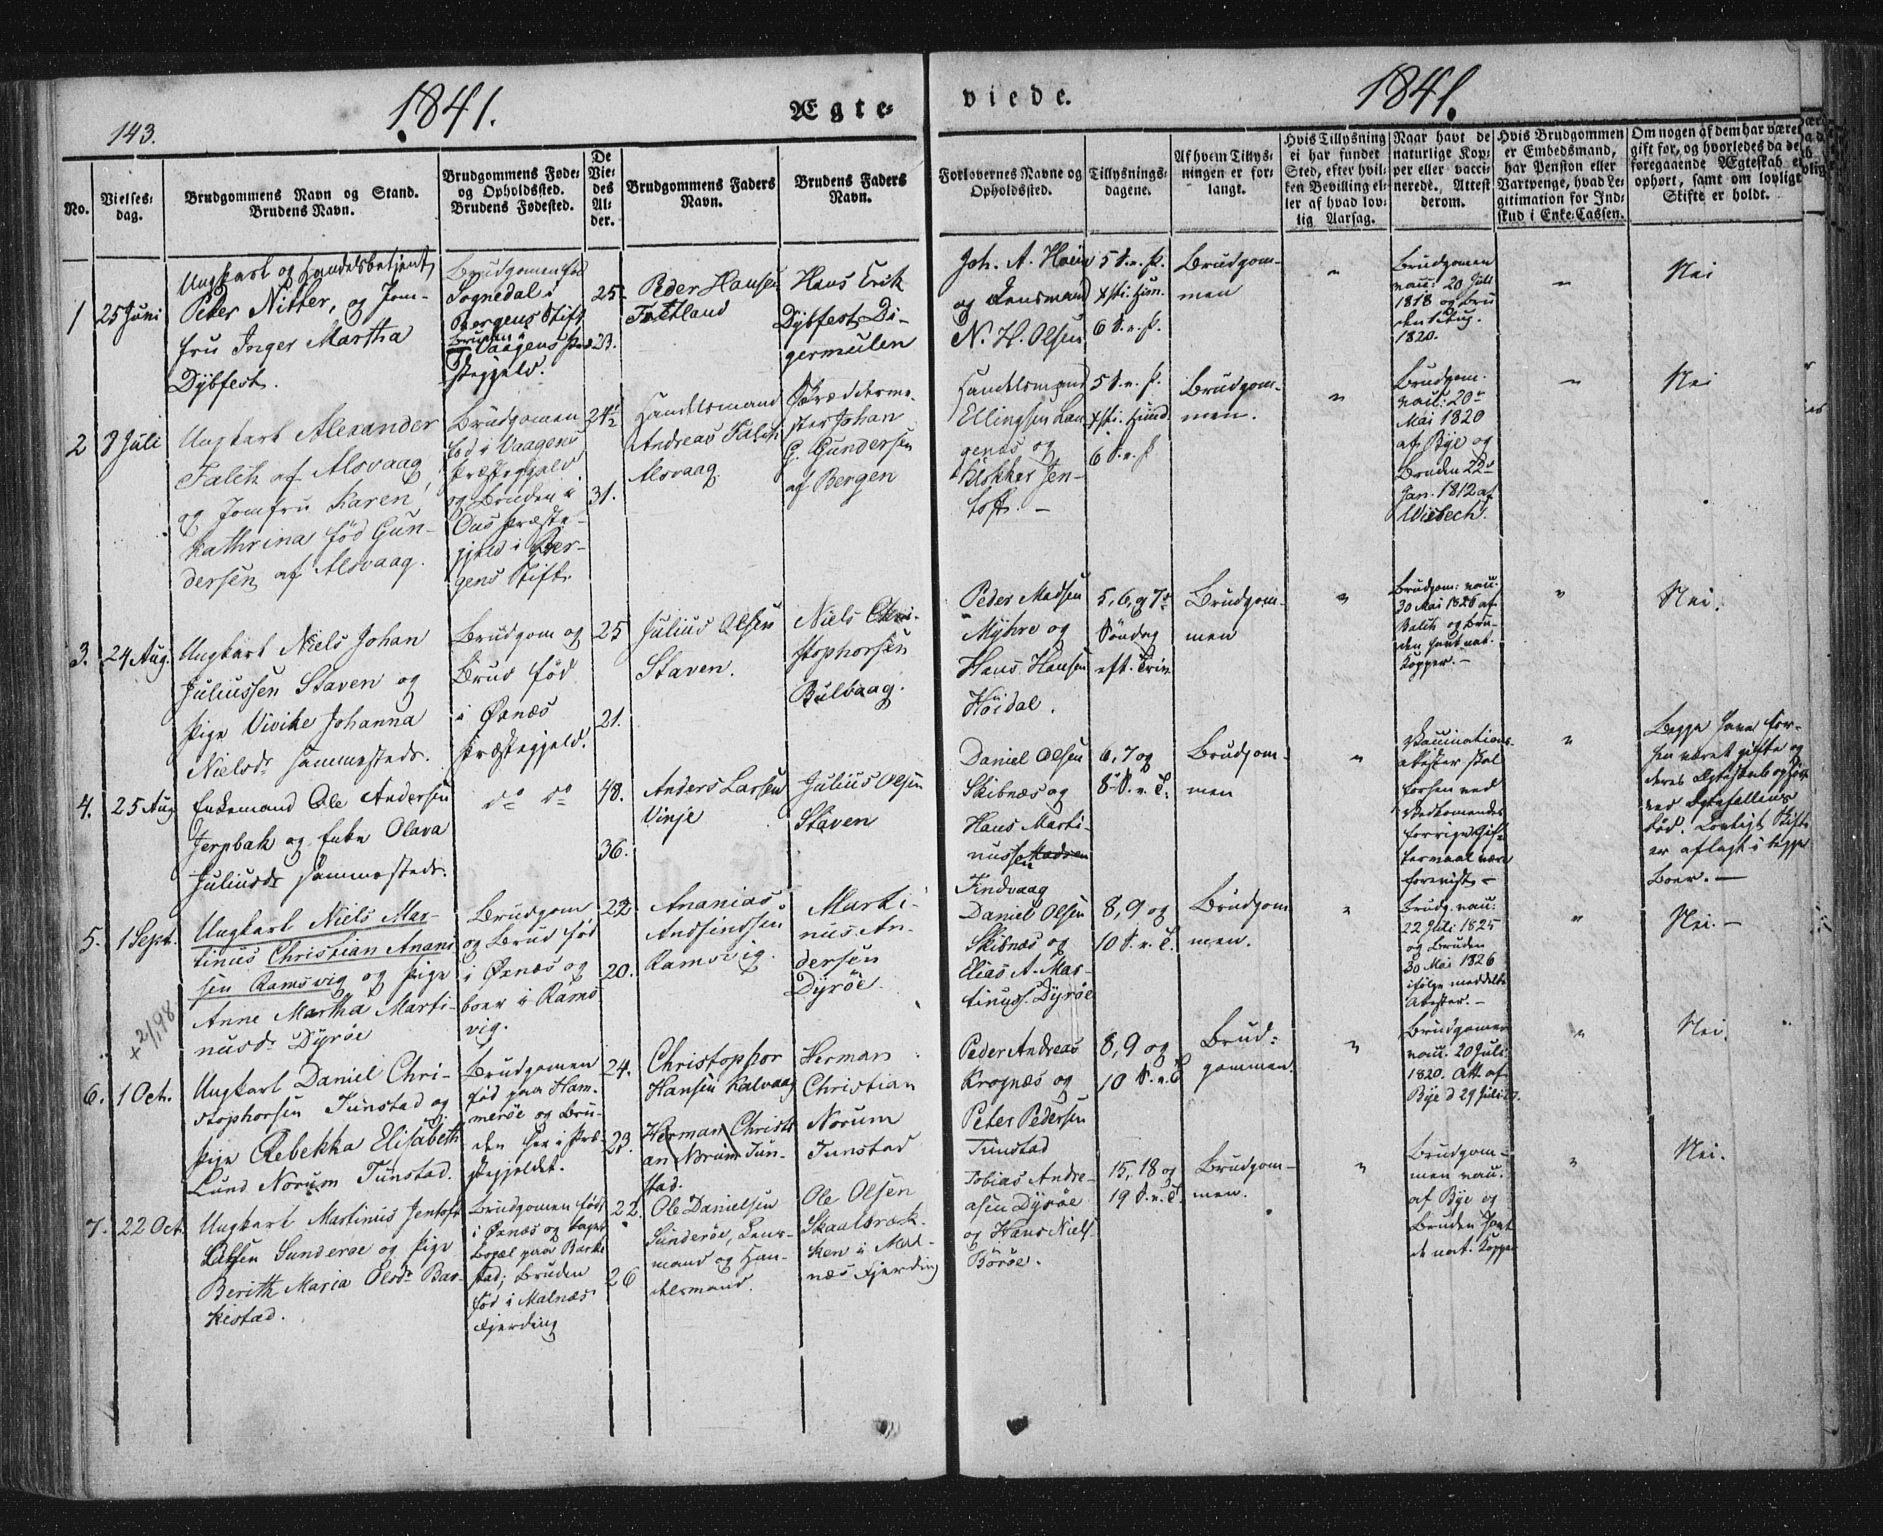 143.
1841.
Ægte-
viede.
1841.
No.
Vielses-
dag.
Brudgommens Navn og Stand.
Brudens Navn.
Brudgommens Føde-
og Opholdssted.
Brudens Fødested.
De
Vie-
des
Al-
der.
Brudgommens Faders
Navn.
Brudens Faders
Navn.
Forlovernes Navne og
Opholdssted.
Tillysnings-
dagene.
Af hvem Tillys-
ningen er for-
langt.
Hvis Tillysning
ei har fundet
Sted, efter hvil-
ken Bevilling el-
ler af hvad lov-
lig Aarsag.
Naar havt de
naturlige Kop-
per eller vacci-
nerede. Attest
derom.
Hvis Brudgommen
er Embedsmand,
har Pension eller
Vartpenge, hvad Le-
gitimation for Ind-
skud i Enke-Cassen.
Om nogen af dem har været
gift for, og hvorledes da de
foregaaende Ægteskab er
ophørt, samt om lovligt
Skifte er holdt.
1
25 Juni
Ungkarl og Handelsbetjent
Peter Nitter, og Jom-
fru Inger Martha
Dybfest.
Brudgomen fød
Sognedal i
Bergens Stift
Bruden i
Vaagens Præ-
stegjeld.
25.
23.
Peder Hansen
Hans Erik
Dybfest Di-
germulen
Joh. A. Hoein
og Lensmand
N. H. Olsen
5 S. e. P.
6 S. e. P.
Brudgom-
men
"
Brudgomen
vacc: 20 Juli
1818 og Bru
den 1 Aug.
1820.
"
Nei
2
8 Juli
Ungkarl Alexander
Falch af Alsvaag,
og Jomfru Karen
Kathrina fød Gun-
dersen af Alsvaag.
Brudgomen
fød i Vaagens
Præstegjeld
og Bruden i
Præste-
gjeld i Ber-
gens Stift.
24½
31.
Handelsmand
Andreas Falch
Alsvaag
Skrædderme-
ster Johan
G. Gundersen
af Bergen
Handelsmand
Ellingsen Lan-
genæs og
Klokker Jen-
toft. -
5 S. e. P.
6 S. e. P
Brudgom-
men.
"
Brudgom.
vacc: 20de
Mai 1820
af Bye og
Bruden 22de
Jan. 1812 af
Wisbech.
"
Nei
3.
24 Aug.
Ungkarl Niels Johan
Juliussen Staven og
Pige Vivike Johanna
Nielsdr sammesteds.
Brudgom og
Brud fød
i Øxnæs
Præstegjeld.
25
21.
Julius Olsen
Staven.
Niels Chri-
stophersen
Bulvaag.
Peder Madsen
Myhre og
Hans Hansen
Høidal.
5, 6, og 7de
Søndag
eft. Trin
Brudgom-
men
"
Brudgom: vacc.
30 Mai 1826 af
Balch og Bru-
den havt nat.
Kopper. -
"
Nei.
4.
25 Aug
Enkemand Ole Andersen
Jerpbak og Enke Olava
Juliusdr sammesteds.
do do
48.
36.
Anders Larsen
Vinje
Julius Olsen
Staven
Daniel Olsen
Skibnæs og
Hans Marti-
nussen
Tindvaag
6, 7 og
8 S. e. T.
Brudgom-
men
"
Vaccinations-
Attester skal
forhen ved
Vedkomendes
forrige Gif-
termaal være
foreviist -
"
Begge have for-
hen været gifte og
deres Ægteskab ophørt
ved Ægtefællens
Død. Lovligt Skifte
er aflagt i begge
Boer. -
5.
1 Sept.
Ungkarl Niels Mar-
tinus Christian Anani
sen Ramsvig og Pige
Anne Martha Marti-
nusdr Dyrøe
Brudgom
og Brud fød
i Øxnæs og
boer i Rams
vig.
22.
20.
Ananias
Andfindsen
Ramsvig.
Marti-
nus An-
dersen
Dyrøe.
Daniel Olsen
Skibnæs og
Elias A. Mar-
tinuss. Dyrøe
8, 9 og
10 S. e. T.
Brudgom
men.
"
Brudg. vacc:
22 Juli 1825
og Bruden
30 Mai 1826
ifølge meddelte
Attester. -
"
Nei. -
+ 2/1, 98
6.
1 Oct.
Ungkarl Daniel Chri-
stophersen Tunstad og
Pige Rebekka Elisabeth
Lund Norum Tunstad.
Brudgomen
fød paa Ham-
merøe og Bru-
den her i Præ-
stegjeldet.
24.
23.
Christopher
Hansen Kalvaag
Herman Christi
an Norum Tun-
stad.
Herman
Christian
Norum
Tunstad
Peder Andreas
Krognæs og
Peter Pedersen
Tunstad
8, 9 og
10 S. e. T
Brud-
gommen.
"
Brudgomen
vacc. 20 Juli
1820. Att. af
Bye d 29 Juli
"
Nei.
7.
22 Oct.
Ungkarl Martinus Jentoft
Olsen Sunderøe og Pige
Berith Maria Olsdr Bar-
kestad.
Brudgomen fød
i Øxnæs og tager
Bopæl paa Barke
stad; Bruden
fød i Malnæs
Fjerding
22.
26
Ole Danielsen
Sunderøe, Lens-
mand og Han-
delsmand.
Ole Olsen
Skaalsræk-
ken i Mal-
næs Fjerding
Tobias Andre-
asen Dyrøe
og Hans Niels.
Børøe.
15, 18 og
19 S. e. T.
Brudgom-
men.
"
Brudgom-
men vacc.
af Bye og
Bruden havt
de nat. Kopper
"
Nei.